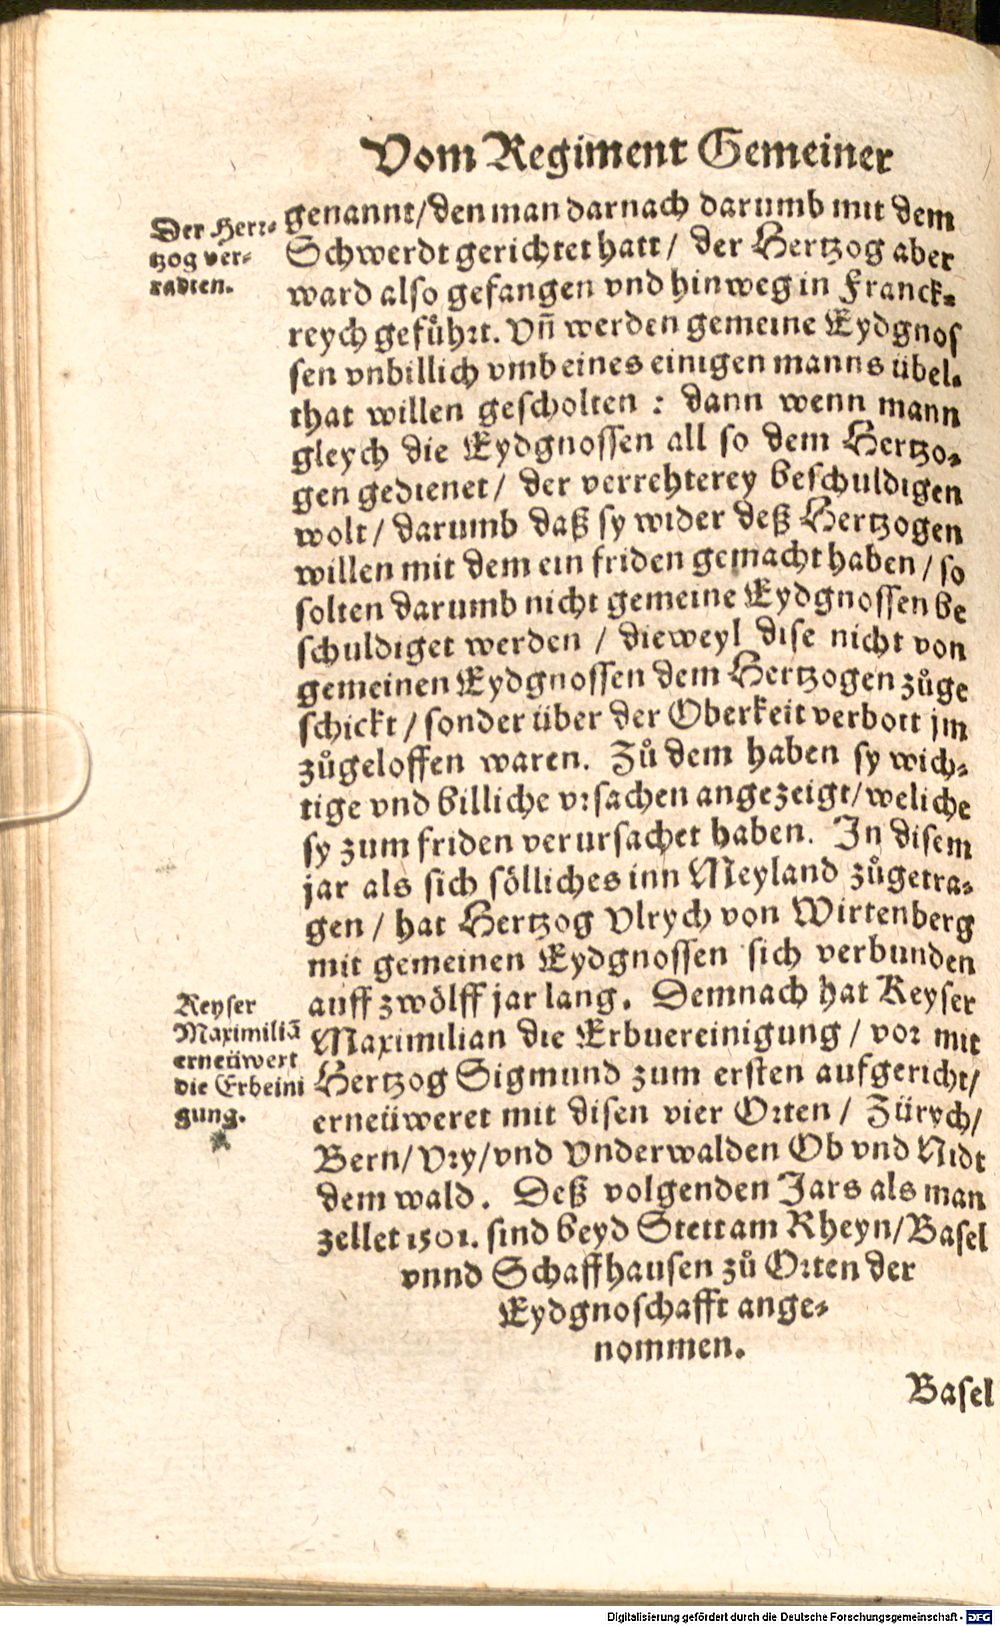 Vom Regiment Gemeiner
Der Hertz-
tzog ver-
radten.
genannt/den man darnach darumb mit dem
Schwerdt gerichtet hatt/ der Hertzog aber
ward also gefangen vnd hinweg in Franck-
reych gefuͤhrt. Vñ werden gemeine Eydgnos
sen vnbillich vmb eines einigen manns übel-
that willen gescholten : dann wenn mann
gleych die Eydgnossen all so dem Hertzo-
gen gedienet/ der verrehterey beschuldigen
wolt/ darumb daß sy wider deß Hertzogen
willen mit dem ein friden gemacht haben/ so
solten darumb nicht gemeine Eydgnossen be
schuldiget werden / dieweyl dise nicht von
gemeinen Eydgnossen dem Hertzogen zůge
schickt/ sonder über der Oberkeit verbott jm
zůgeloffen waren. Zů dem haben sy wich-
tige vnd billiche vrsachen angezeigt/weliche
sy zum friden verursachet haben. In disem
jar als sich sölliches inn Meyland zůgetra-
gen / hat Hertzog Vlrych von Wirtenberg
mit gemeinen Eydgnossen sich verbunden
auff zwölff jar lang. Demnach hat Keyser
Keyser
Maximiliā
erneüwert
die Erbeini
gung.
Maximilian die Erbuereinigung / vor mit
Hertzog Sigmund zum ersten aufgericht/
erneüweret mit disen vier Orten / Zürych/
Bern/Vry/vnd Vnderwalden Ob vnd Nidt
dem wald. Deß volgenden Jars als man
zellet 1501. sind beyd Stett am Rheyn/Basel
vnnd Schaffhausen zů Orten der
Eydgnoschafft ange-
nommen.
Basel
Digitalisierung gefördert durch die Deutsche Forschungsgemeinschaft - DFG